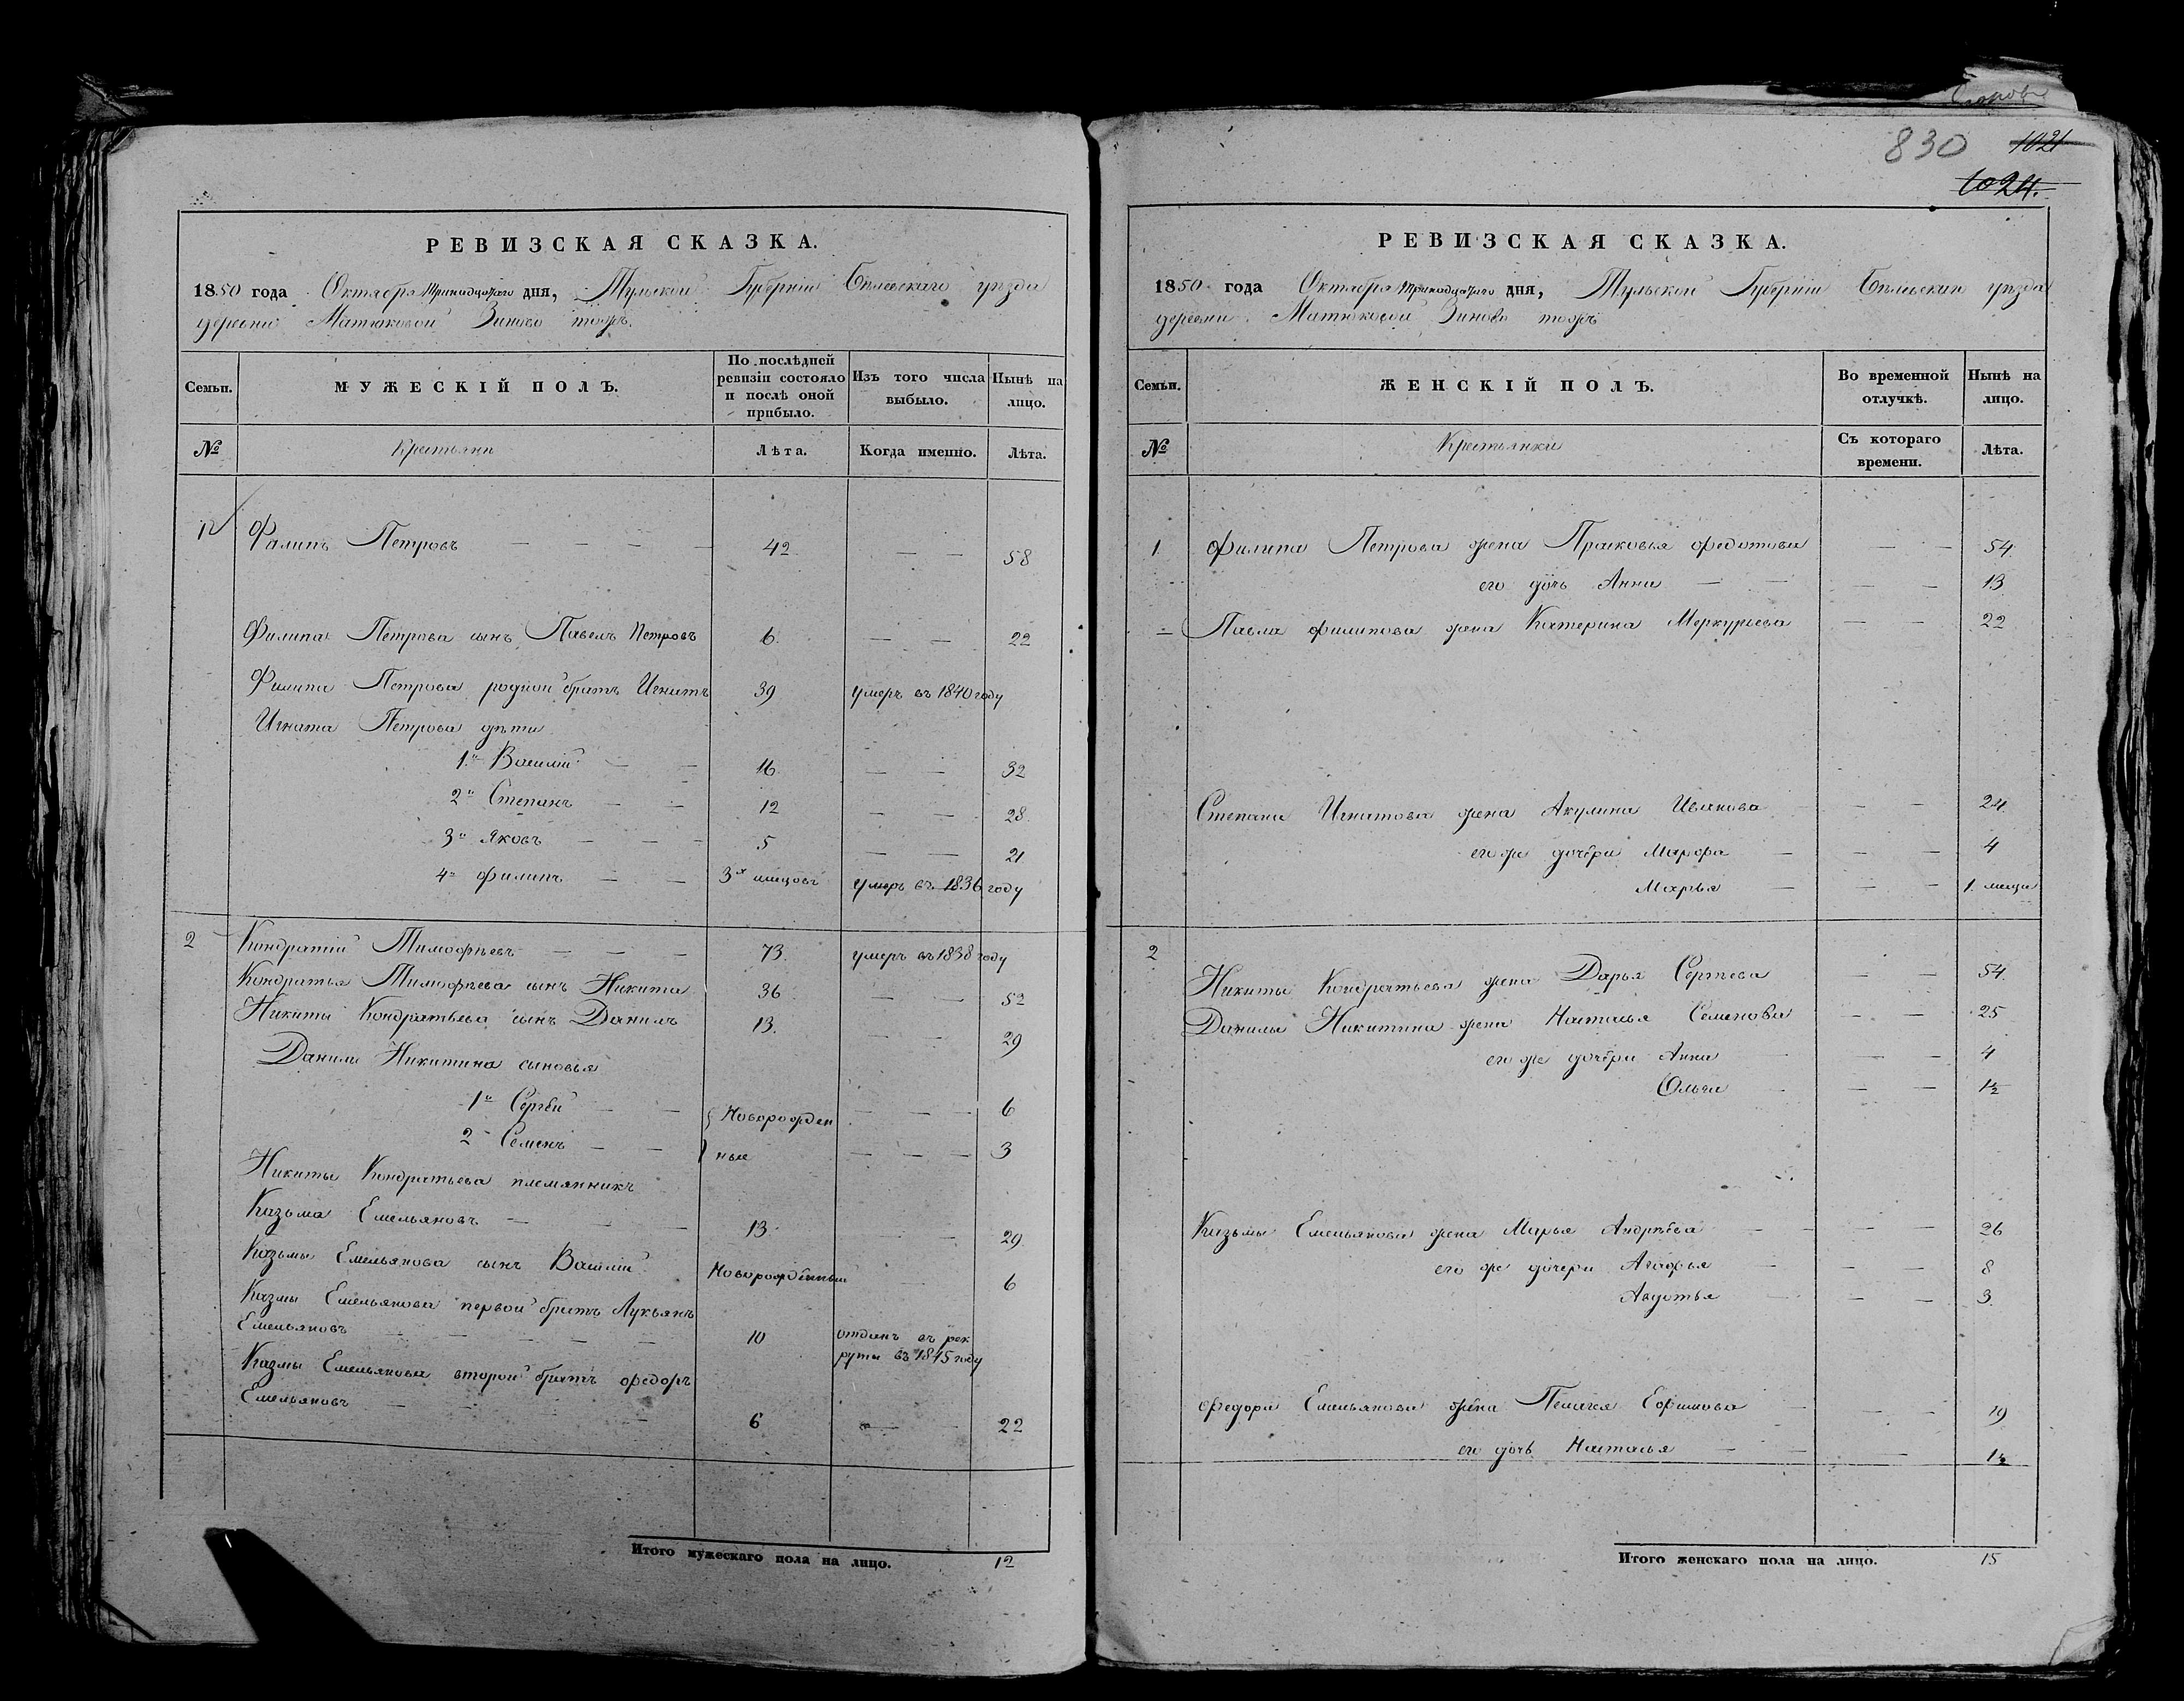 830 1021
1024.
РЕВИЗСКАЯ СКАЗКА.
1850 года Октября тринадцатаго дня, Тульской Губерніи Бѣлевскаго уѣзда
деревни Матюковой Зиново тожъ.
Семьи.
МУЖЕСКІЙ ПОЛЪ.
По послѣдней ревизіи состояло и послѣ оной прибыло.
Изъ того числа выбыло.
Нынѣ на лицо.
№ Крестьяни Лѣта. Когда именно. Лѣта.
1 Филипъ Петровъ — — — — 42 — — 58
Филипа Петрова сынъ Павелъ Петровъ 6. — — 22
Филипа Петрова родной братъ Игнатъ 39 умеръ въ 1840 году
Игната Петрова дѣти
1й Василій — — 16 — — 32
2й Степанъ — — 12 — — 28
3й Яковъ — — — 5 — — 21
4й Филипъ — — 3х мѣсцовъ умеръ въ 1836 году
2 Кондратій Тимофѣевъ — — — 73. умеръ въ 1838 году
Кондратья Тимофѣева сынъ Никита 36 — — 52
Никиты Кондратьева сынъ Данилъ 13. — — 29
Данилы Никитина сыновья
1й Сергѣй — — Новорожден — — — 6
2й Семенъ — — ные — — — 3
Никиты Кондратьева племянникъ
Казьма Емельяновъ — — — 13. — — 29
Казьмы Емельянова сынъ Василій Новорожденный — 6
Казмы Емельянова первой братъ Лукьянъ
Емельяновъ — — — — — 10 отданъ въ рек
руты въ 1845 году
Казмы Емельянова второй братъ Федоръ
Емельяновъ — — — 6 — — 22
Итого мужескаго пола на лицо. 12
РЕВИЗСКАЯ СКАЗКА.
1850 года Октября тринадцатаго дня, Тульской Губерніи Бѣлевскаго уѣзда
деревни Матюковой Зиново тожъ
Семьи.
ЖЕНСКІЙ ПОЛЪ.
Во временной отлучкѣ.
Нынѣ на лицо.
№ Крестьянки Съ котораго времени. Лѣта.
1 Филипа Петрова жена Прасковья Федотова — — 54
его дочь Анна — — — — 13
Павла Филипова жена Катерина Меркурьева — — 22
Степана Игнатова жена Акулина Иванова — — 24
его же дочери Марфа — — — 4
Марья — — — 1. месца
2
Никиты Кондратьева жена Дарья Сергѣева — — 54.
Данилы Никитина жена Наталья Семенова — — 25
его же дочери Анна — — — 4
Ольга — — — 1½
Казьмы Емельянова жена Марья Андрѣева — — — 26
его же дочери Агафья — — — 8
Авдотья — — — 3.
Федора Емельянова жена Пелагея Ефимова — — — 19
его дочь Наталья — — — — 1½
Итого женскаго пола на лицо. 15